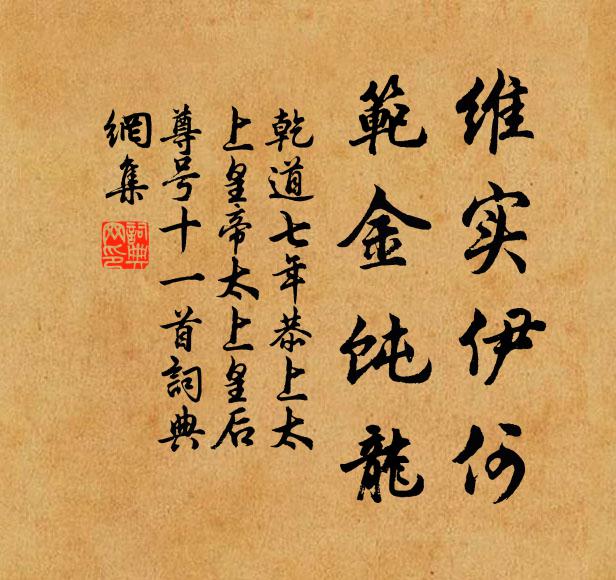 維实伊何
範金饨龍
乾道七年恭上太
上皇帝太上皇后
尊号十一首詞典
網集
詞典
网印